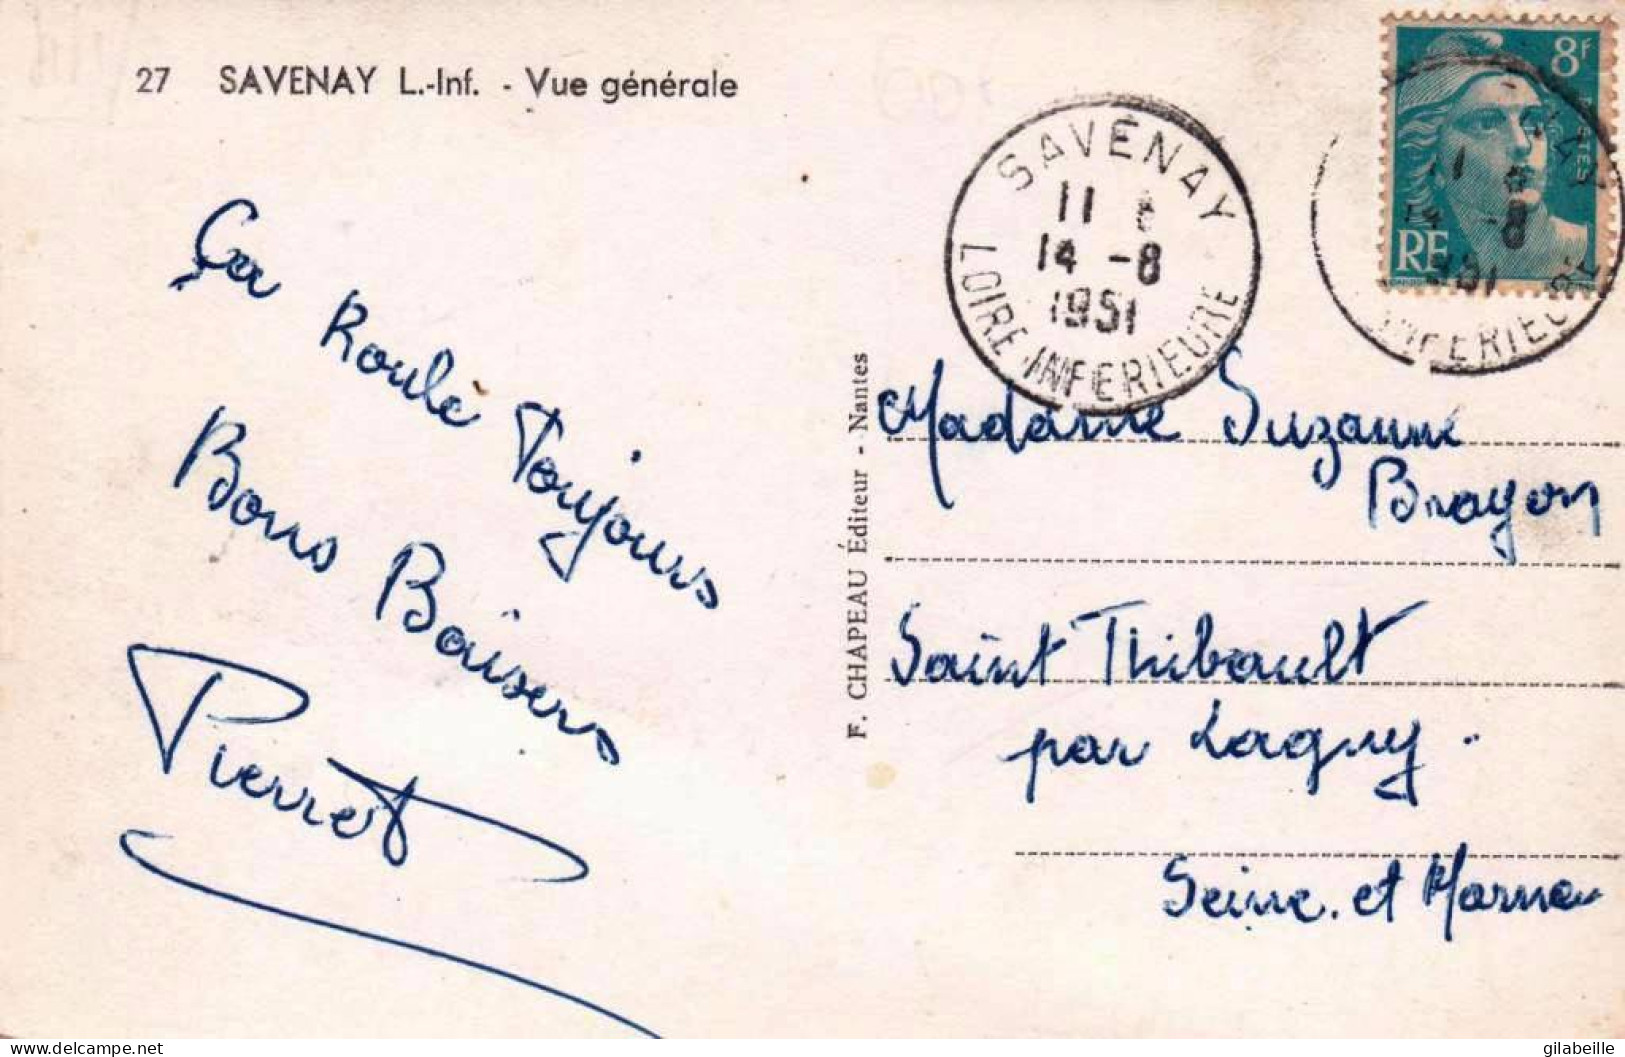 27 SAVENAY L.-Inf. - Vue générale
Ça Roule Toujours
Bons Baisers
Pierret
F. CHAPEAU Éditeur - Nantes
SAVENAY
11
14 -8
1951
LOIRE INFERIEURE
8F
POSTES
RF
14 -8
1951
INFERIEURE
Madame Suzanne
Brayon
Saint Thibault
par Lagny.
Seine. et Marne
delcampe.net
gilabeille